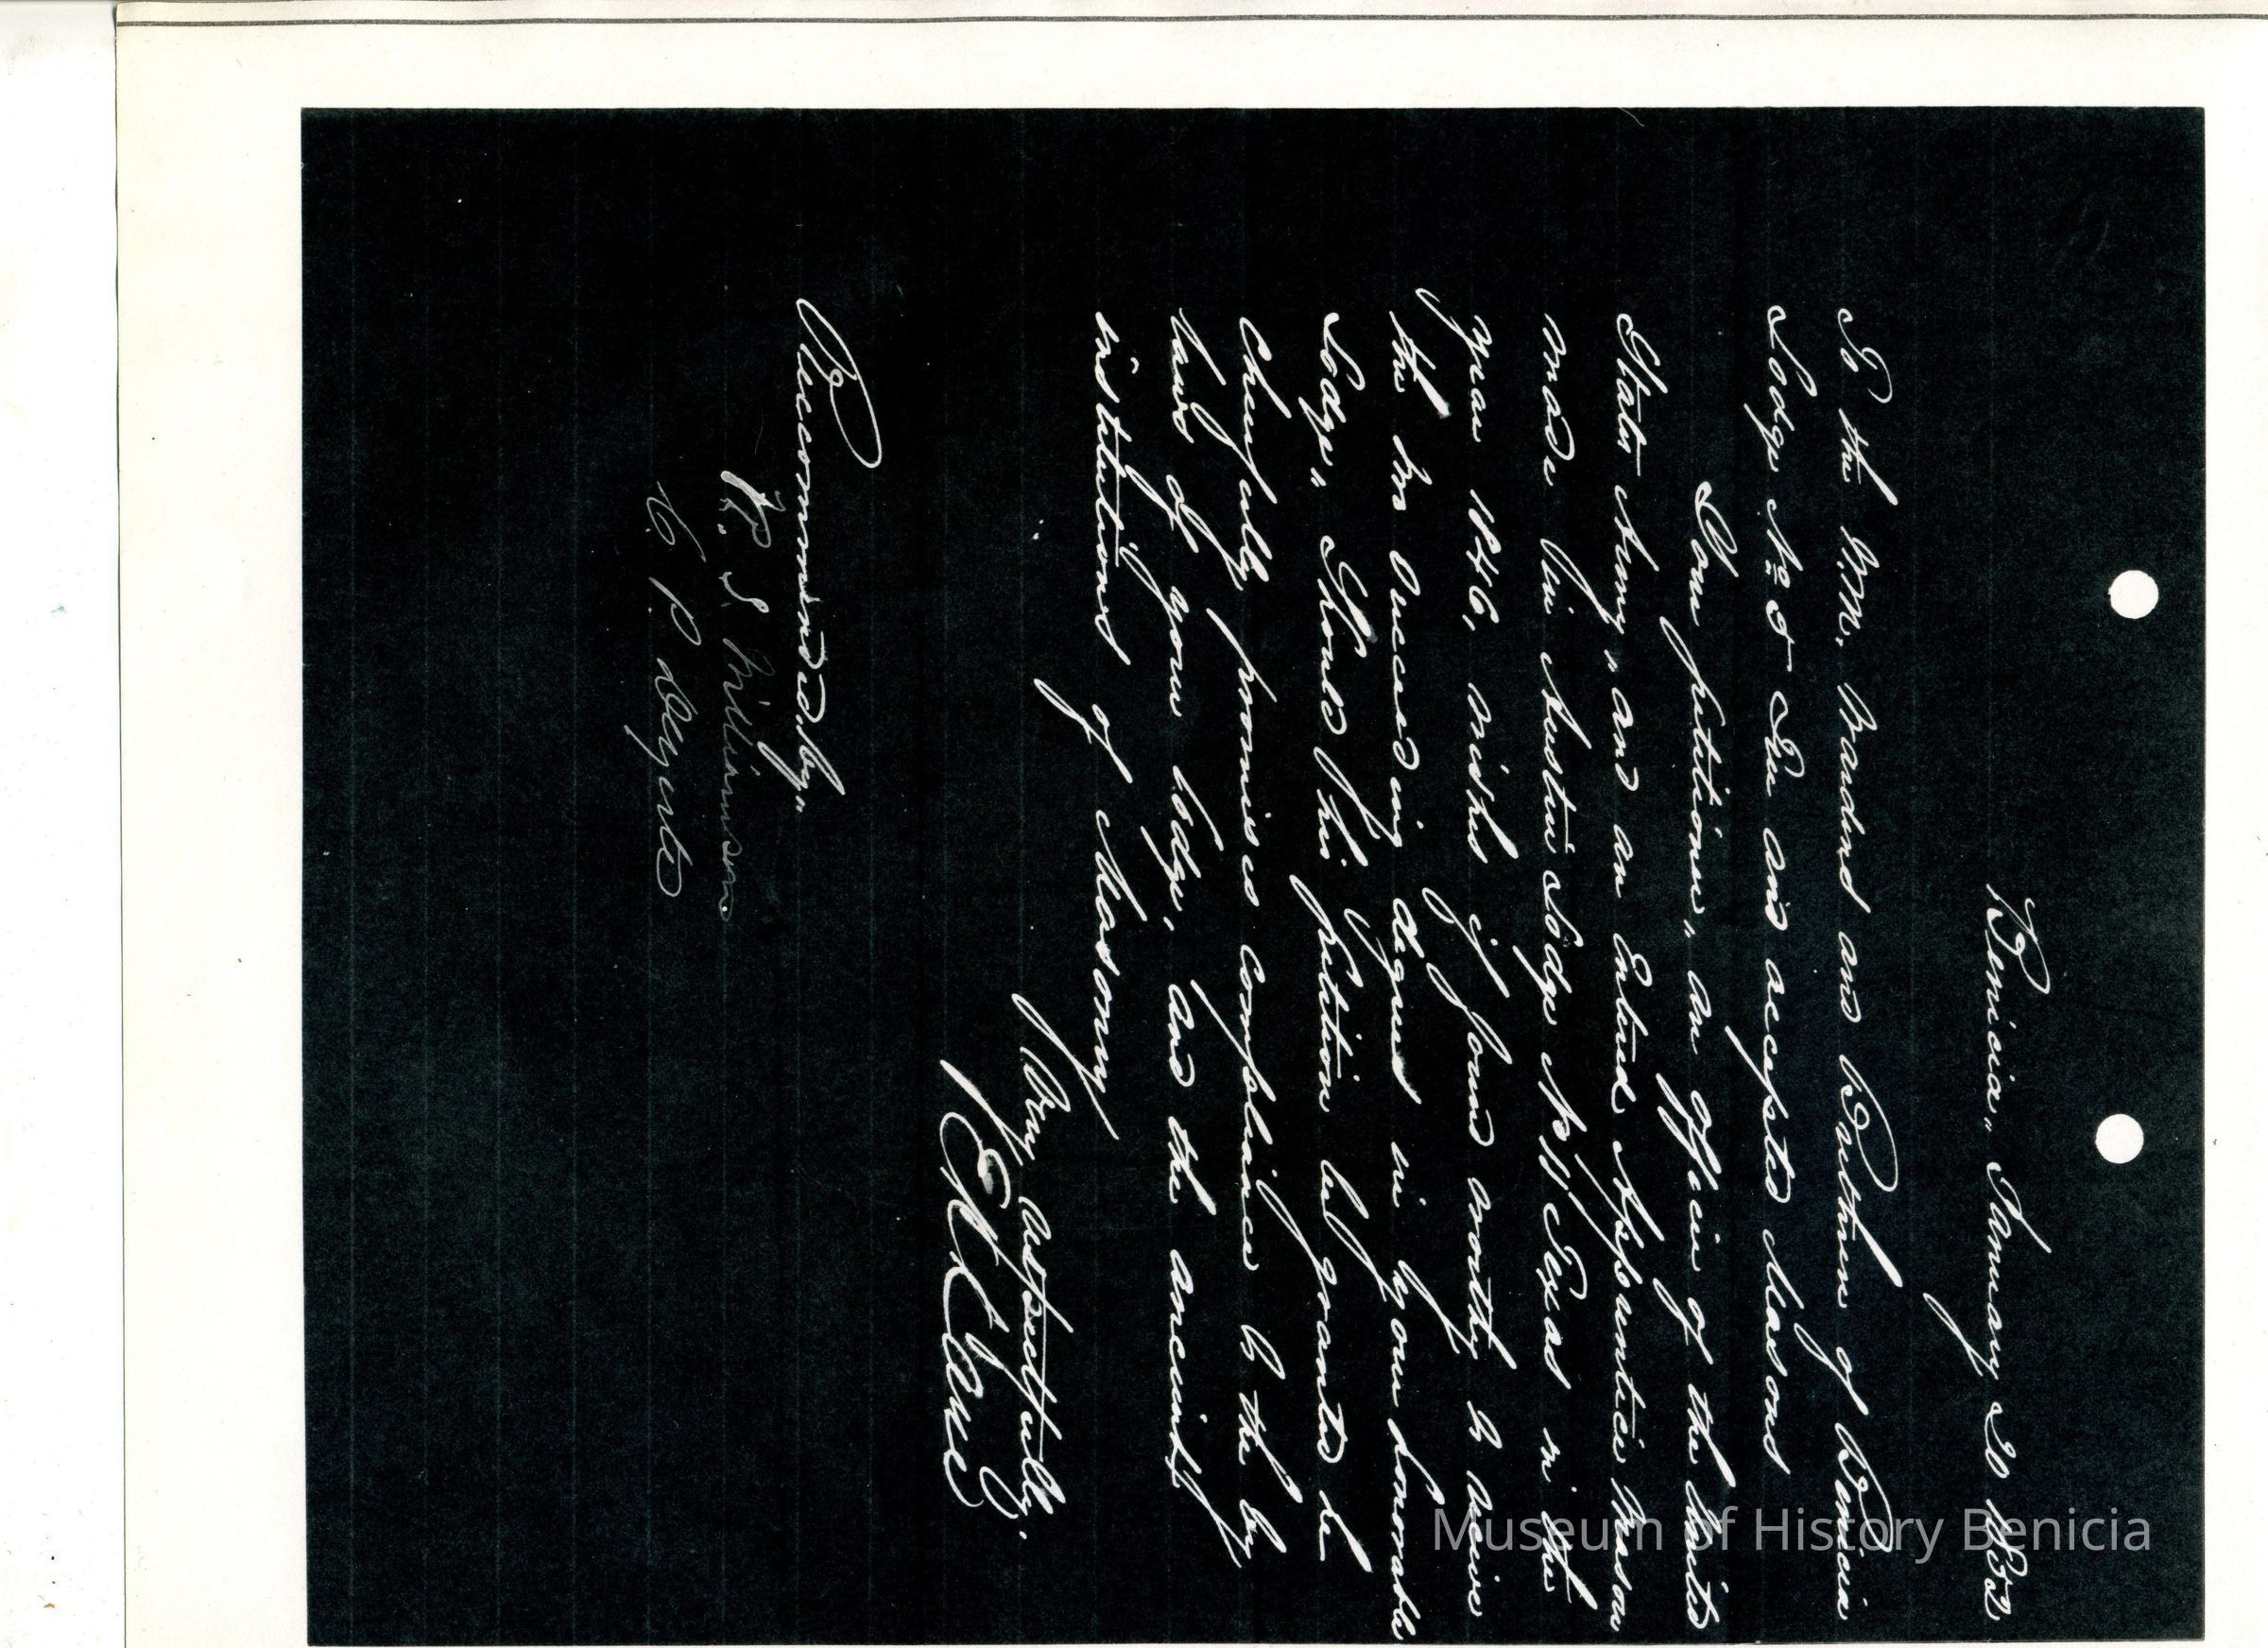 Benicia, January 20 1852
To the W.M. Wardens and Brethren of Benicia
Lodge No 5 Free and accepted Masons
Your petitioner, an officer of the United
States Army, and an Entered Apprentice Mason
made in Austin Lodge No Texas in the
year 1846, wishes if found worthy to receive
the succeeding degrees in your honorable
Lodge, Should his petition be granted he
cheerfully promises compliance to the by
laws of your lodge, and the ancient
institutions of Masonry
Very respectfully,
Recommended by,
R. S. Williamson
C P
Museum of History Benicia